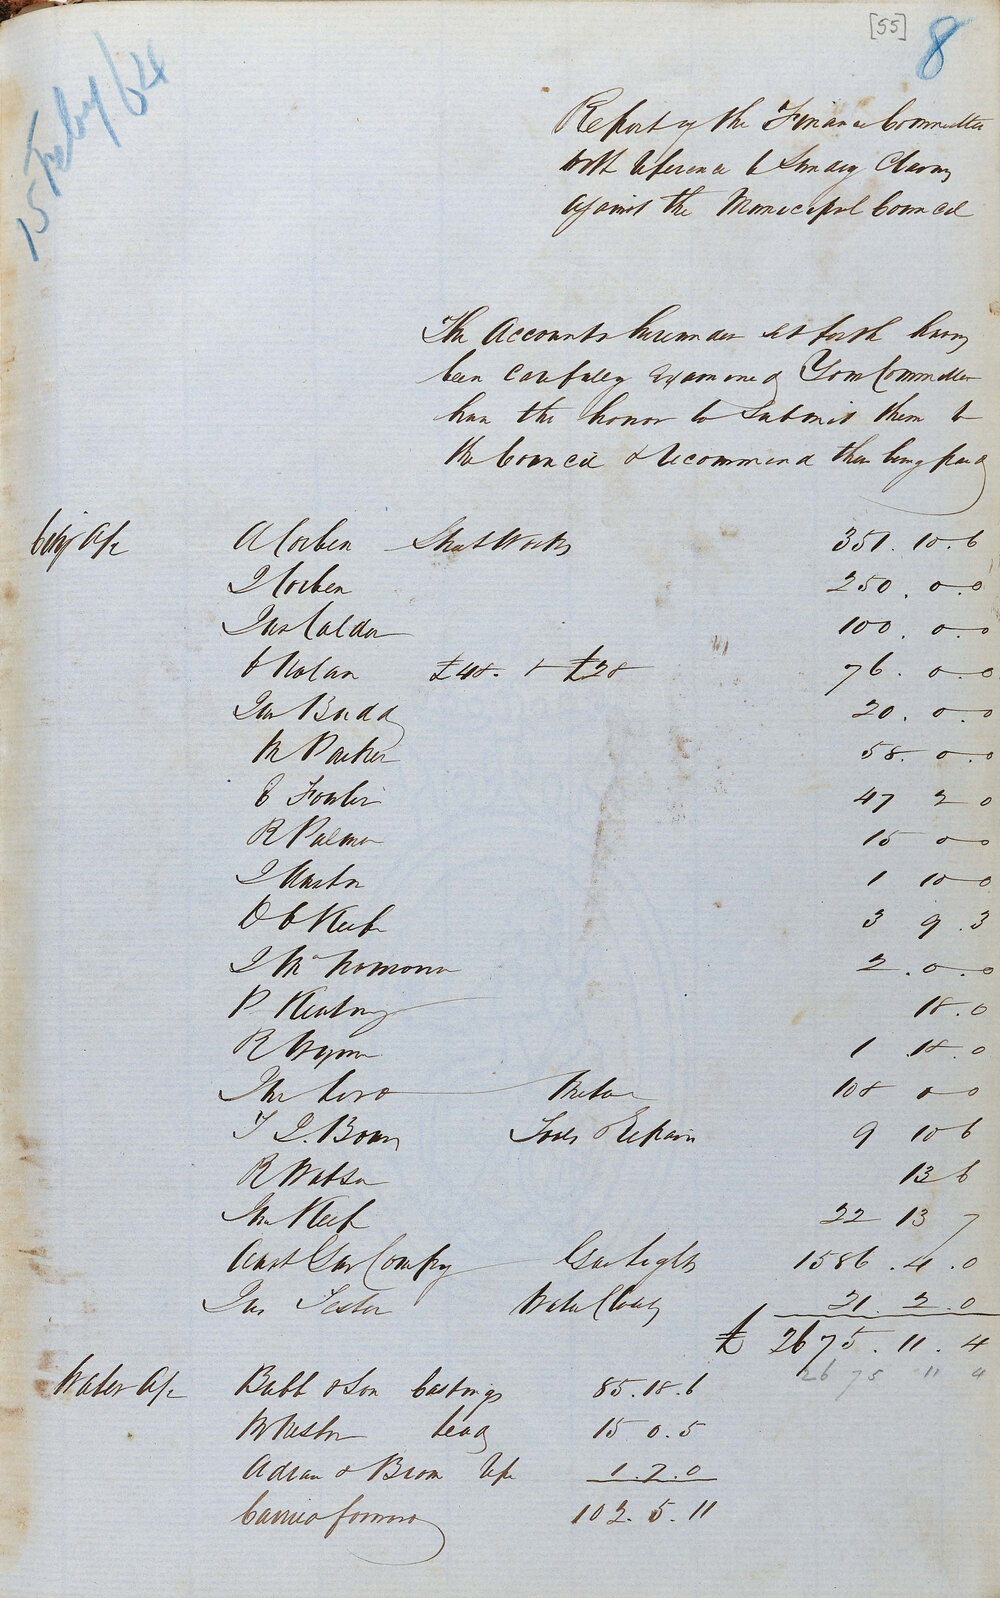 [55] 8
15 Feby/64
Report of the Finance Committee
with reference to Sundry Claims
against the Municipal Council
The Accounts hereunder set forth having
been carefully examined Your Committee
have the honor to Submit them to
the Council & recommend their being paid
City A/c A Corben Street Works 351. 10. 6
J Corben 250. 0. 0
Jas Calder 100. 0. 0
Nolan £48. + £28 76. 0. 0
Budd 20. 0. 0
M Parker 58. 0. 0
E Fowler 47 2 0
R Palmer 15 0 0
J 1 10 0
D O Keefe 3 9. 3
J McNamara 2. 0. 0
P Keating 18. 0
R Wynne 1 18. 0
108 0 0
T J. Bown Tools Repairs 9 10 6
R Watson 13 6
Keef 22 13 7
Aust Gas Compy Gas Lights 1586. 4. 0
Water Closets 21. 2. 0
£ 2675. 11. 4
2675 11 4
Water A/c Bubb & Son Castings 85. 18. 6
lead 15 0. 5
1. 7. 0
Carried forward 102. 5. 11